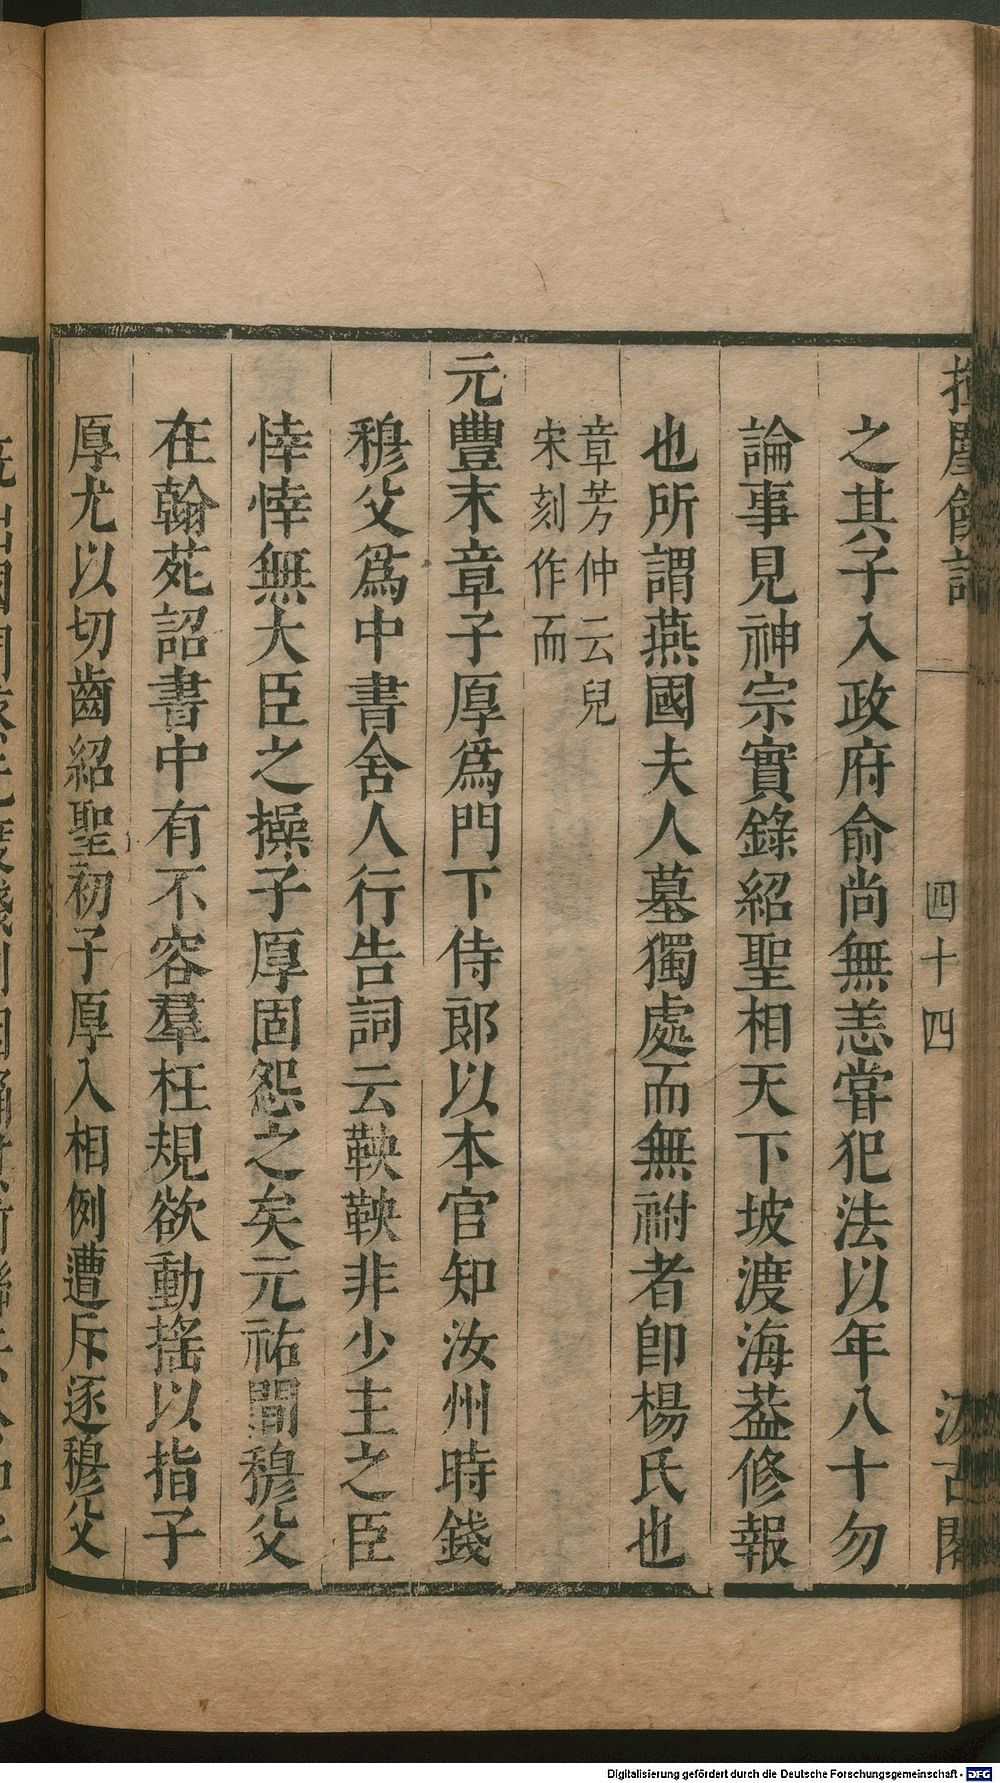 揮麈餘話
四十四
汲古閣
之其子入政府俞尚無恙甞犯法以年八十勿
論事見神宗實錄紹聖相天下坡渡海葢修報
也所謂燕國夫人墓獨處而無祔者卽楊氏也
章芳仲云兒
宋刻作而
元豐末章子厚爲門下侍郎以本官知汝州時錢
穆父爲中書舍人行告詞云鞅鞅非少主之臣
悻悻無大臣之操子厚固怨之矣元祐間穆父
在翰苑詔書中有不容羣枉規欲動搖以指子
厚尤以切齒紹聖初子厚入相例遭斥逐穆父
Digitalisierung gefördert durch die Deutsche Forschungsgemeinschaft - DFG